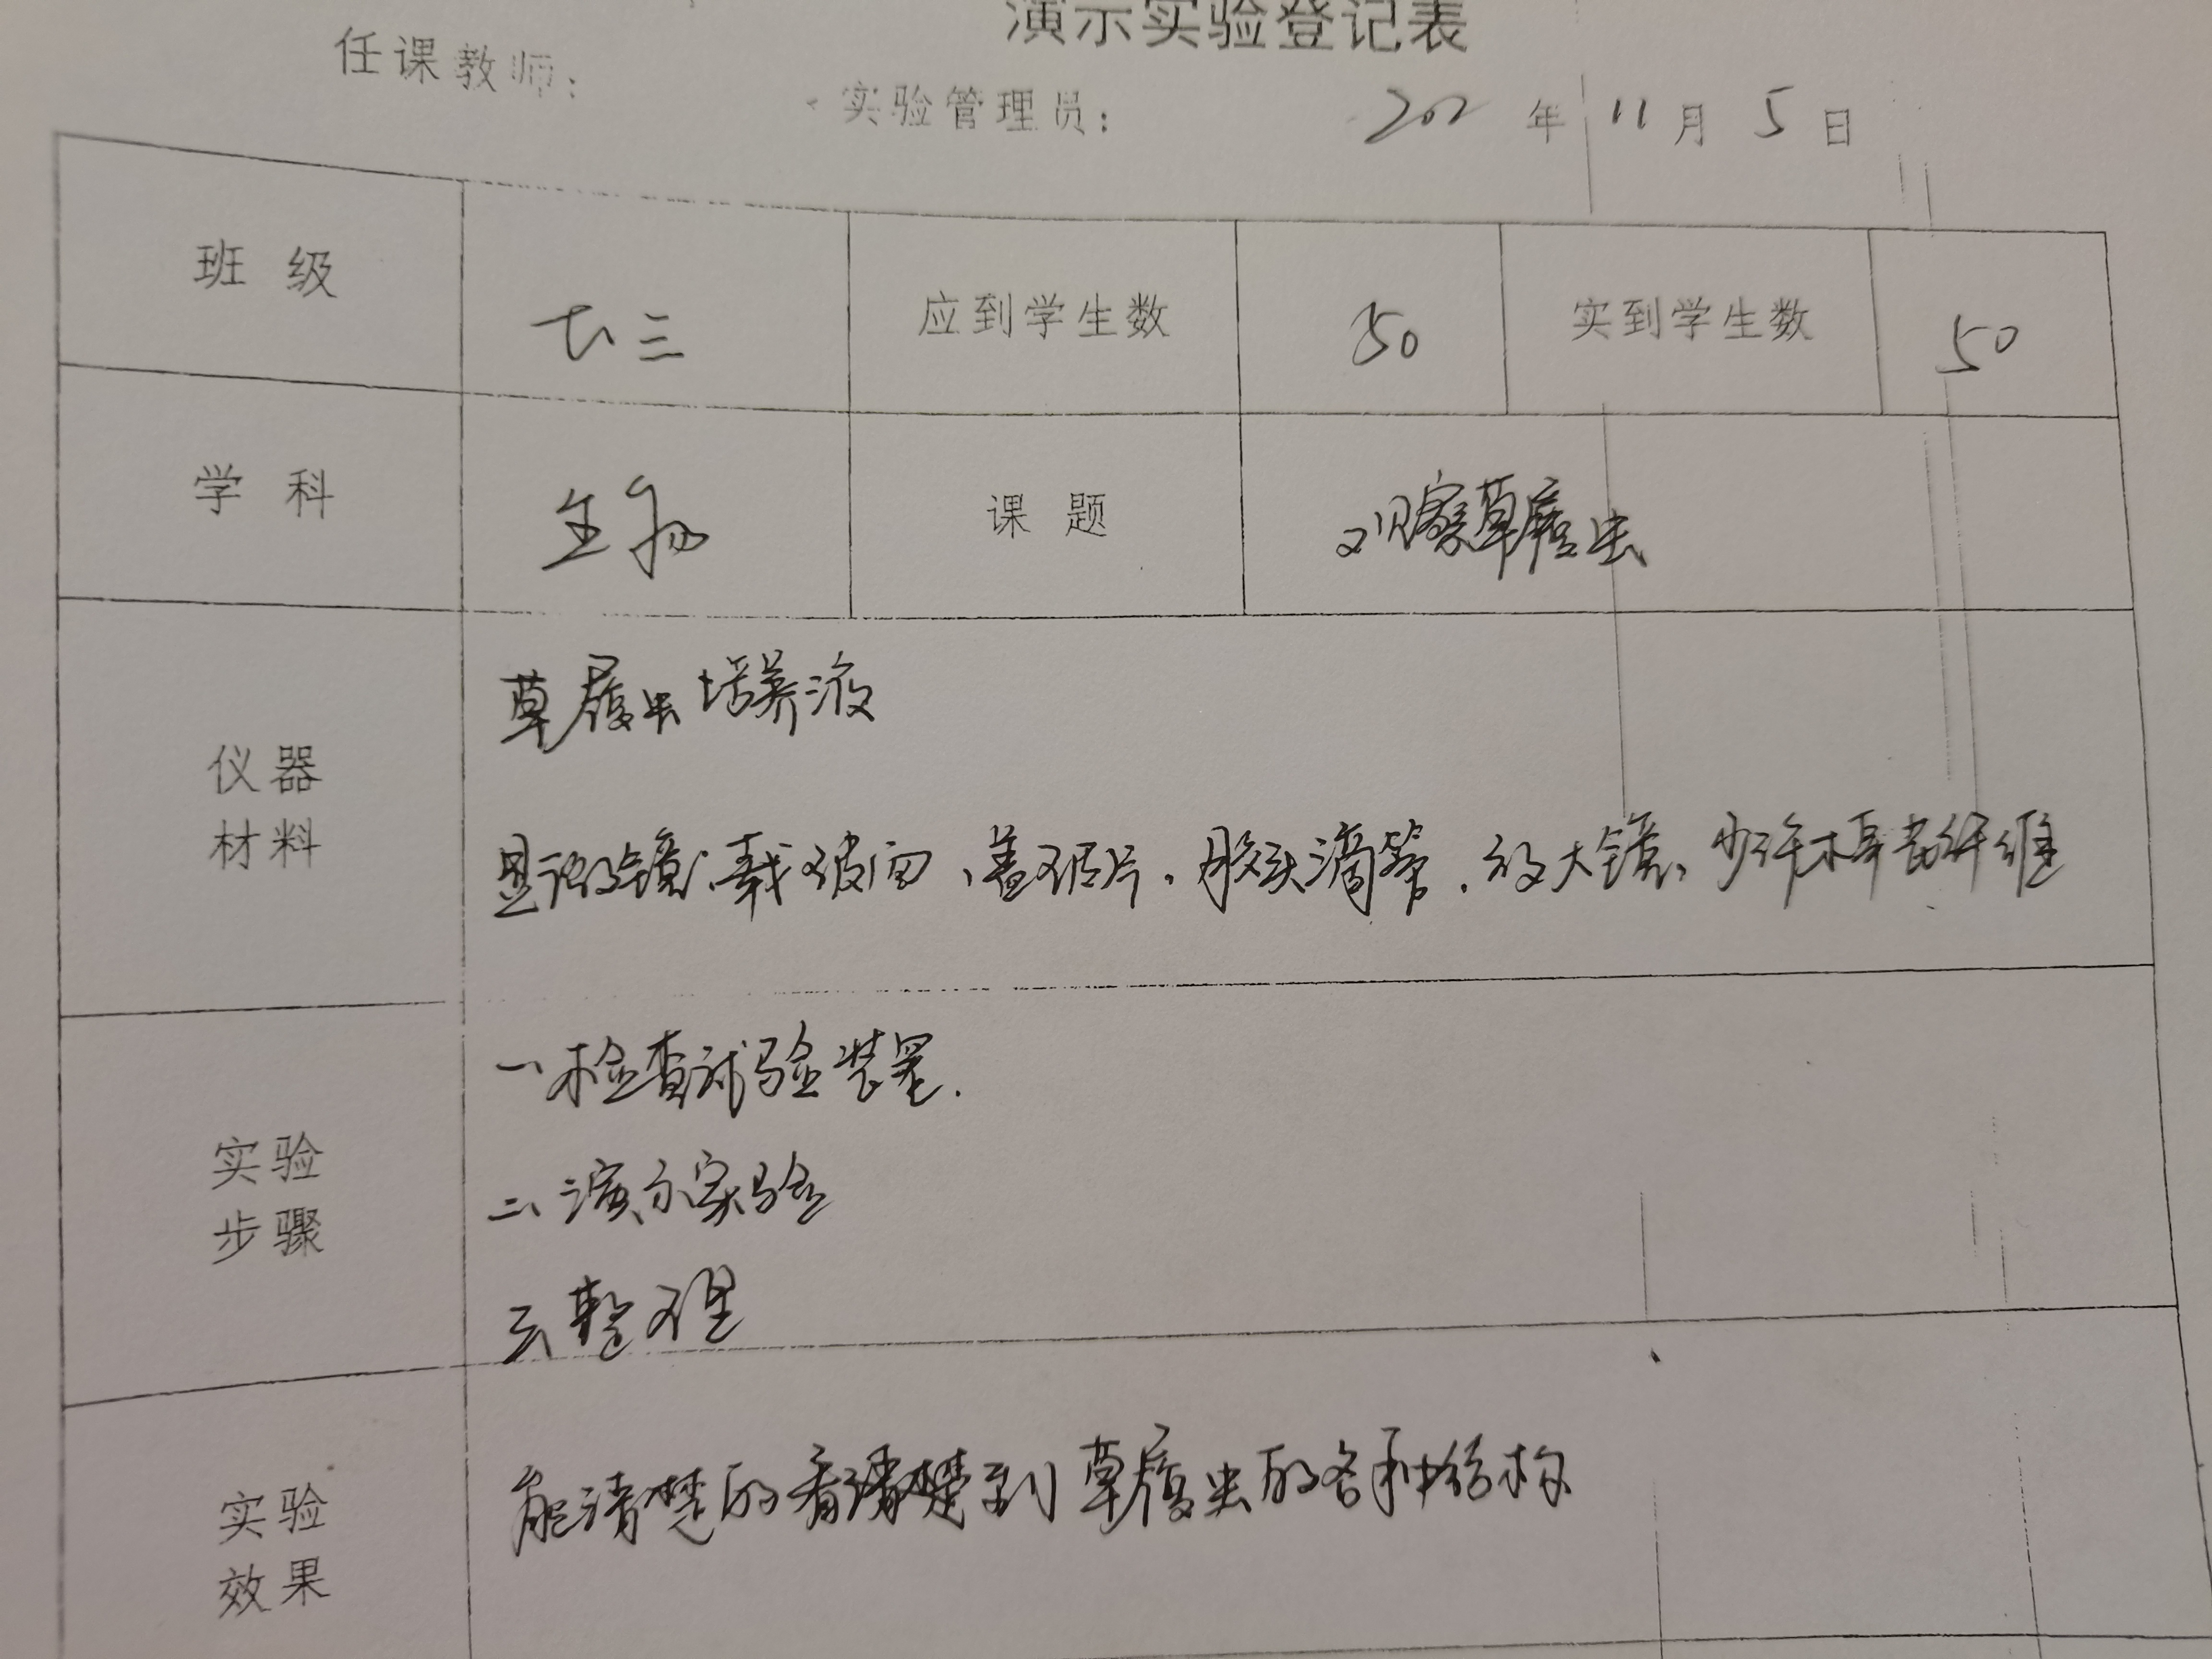 演示实验登记表
任课教师：
实验管理员： 202 年 11 月 5 日
班 级 七、三 应到学生数 50 实到学生数 50
学 科 生物 课 题 观察草履虫
仪器 材料
草履虫培养液
显微镜、载玻 、盖玻片、胶头滴管、放大镜、少许棉 纤维
实验 步骤
一、检查试验装置.
二、演示实验
三、整理
实验 效果
能清楚的看清楚到草履虫的各种结构